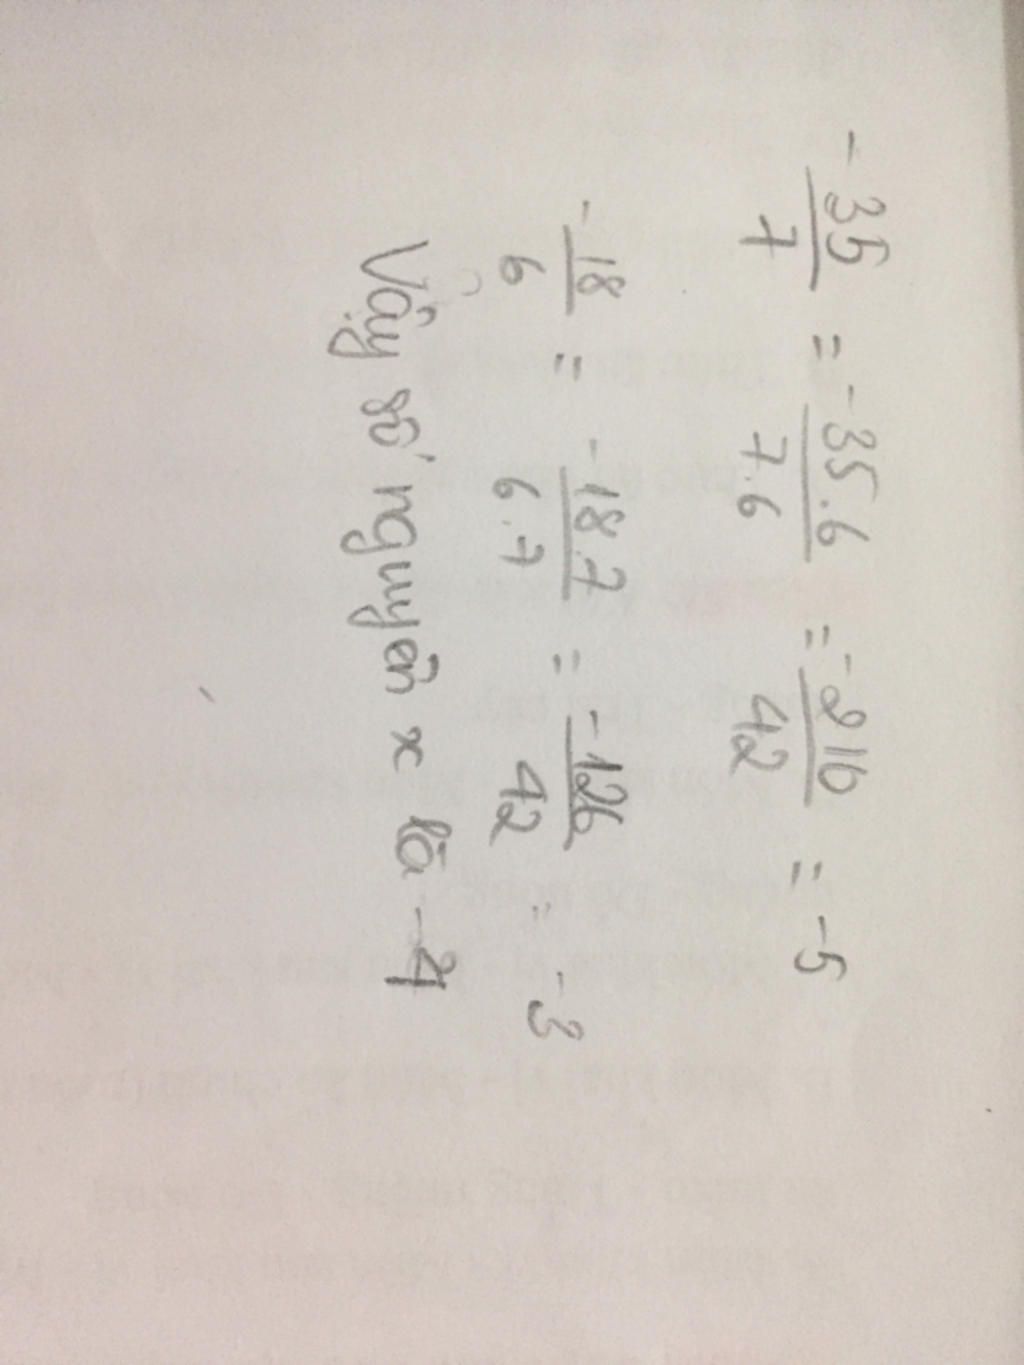 -35/7 = -35.6/7.6 = -216/42 = -5
-18/6 = -18.7/6.7 = -126/42 = -3
Vậy số nguyên x là -4